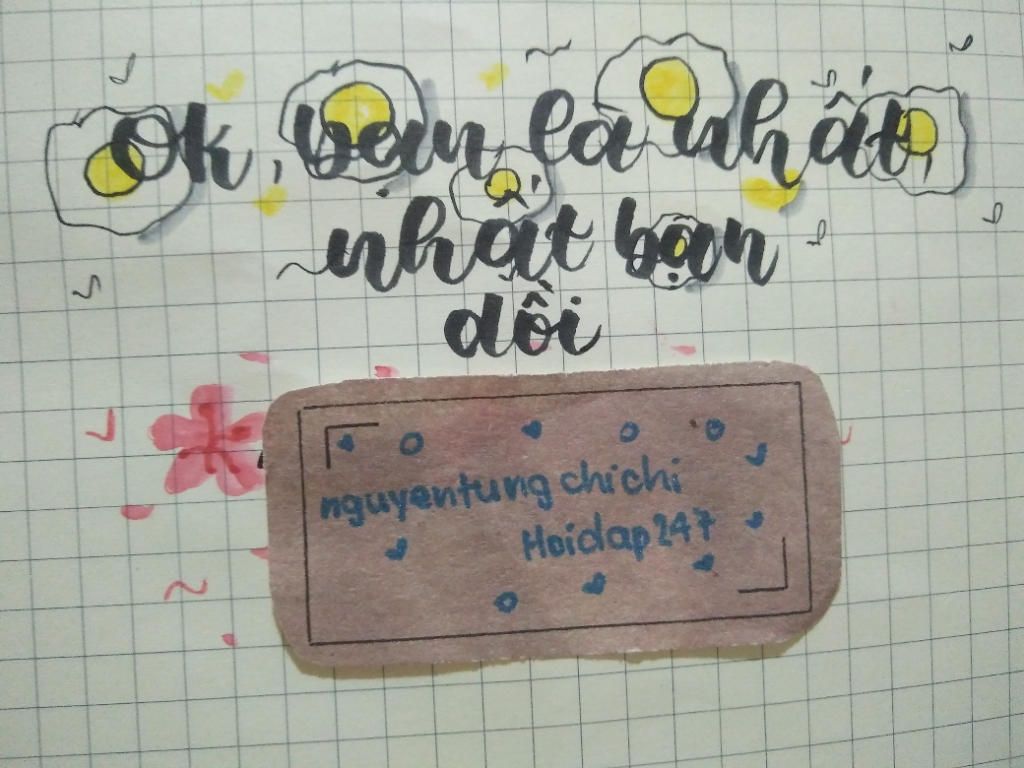 Ok, bạn là nhất,
nhất bạn
dồi
nguyentungchichi
Hoidap247